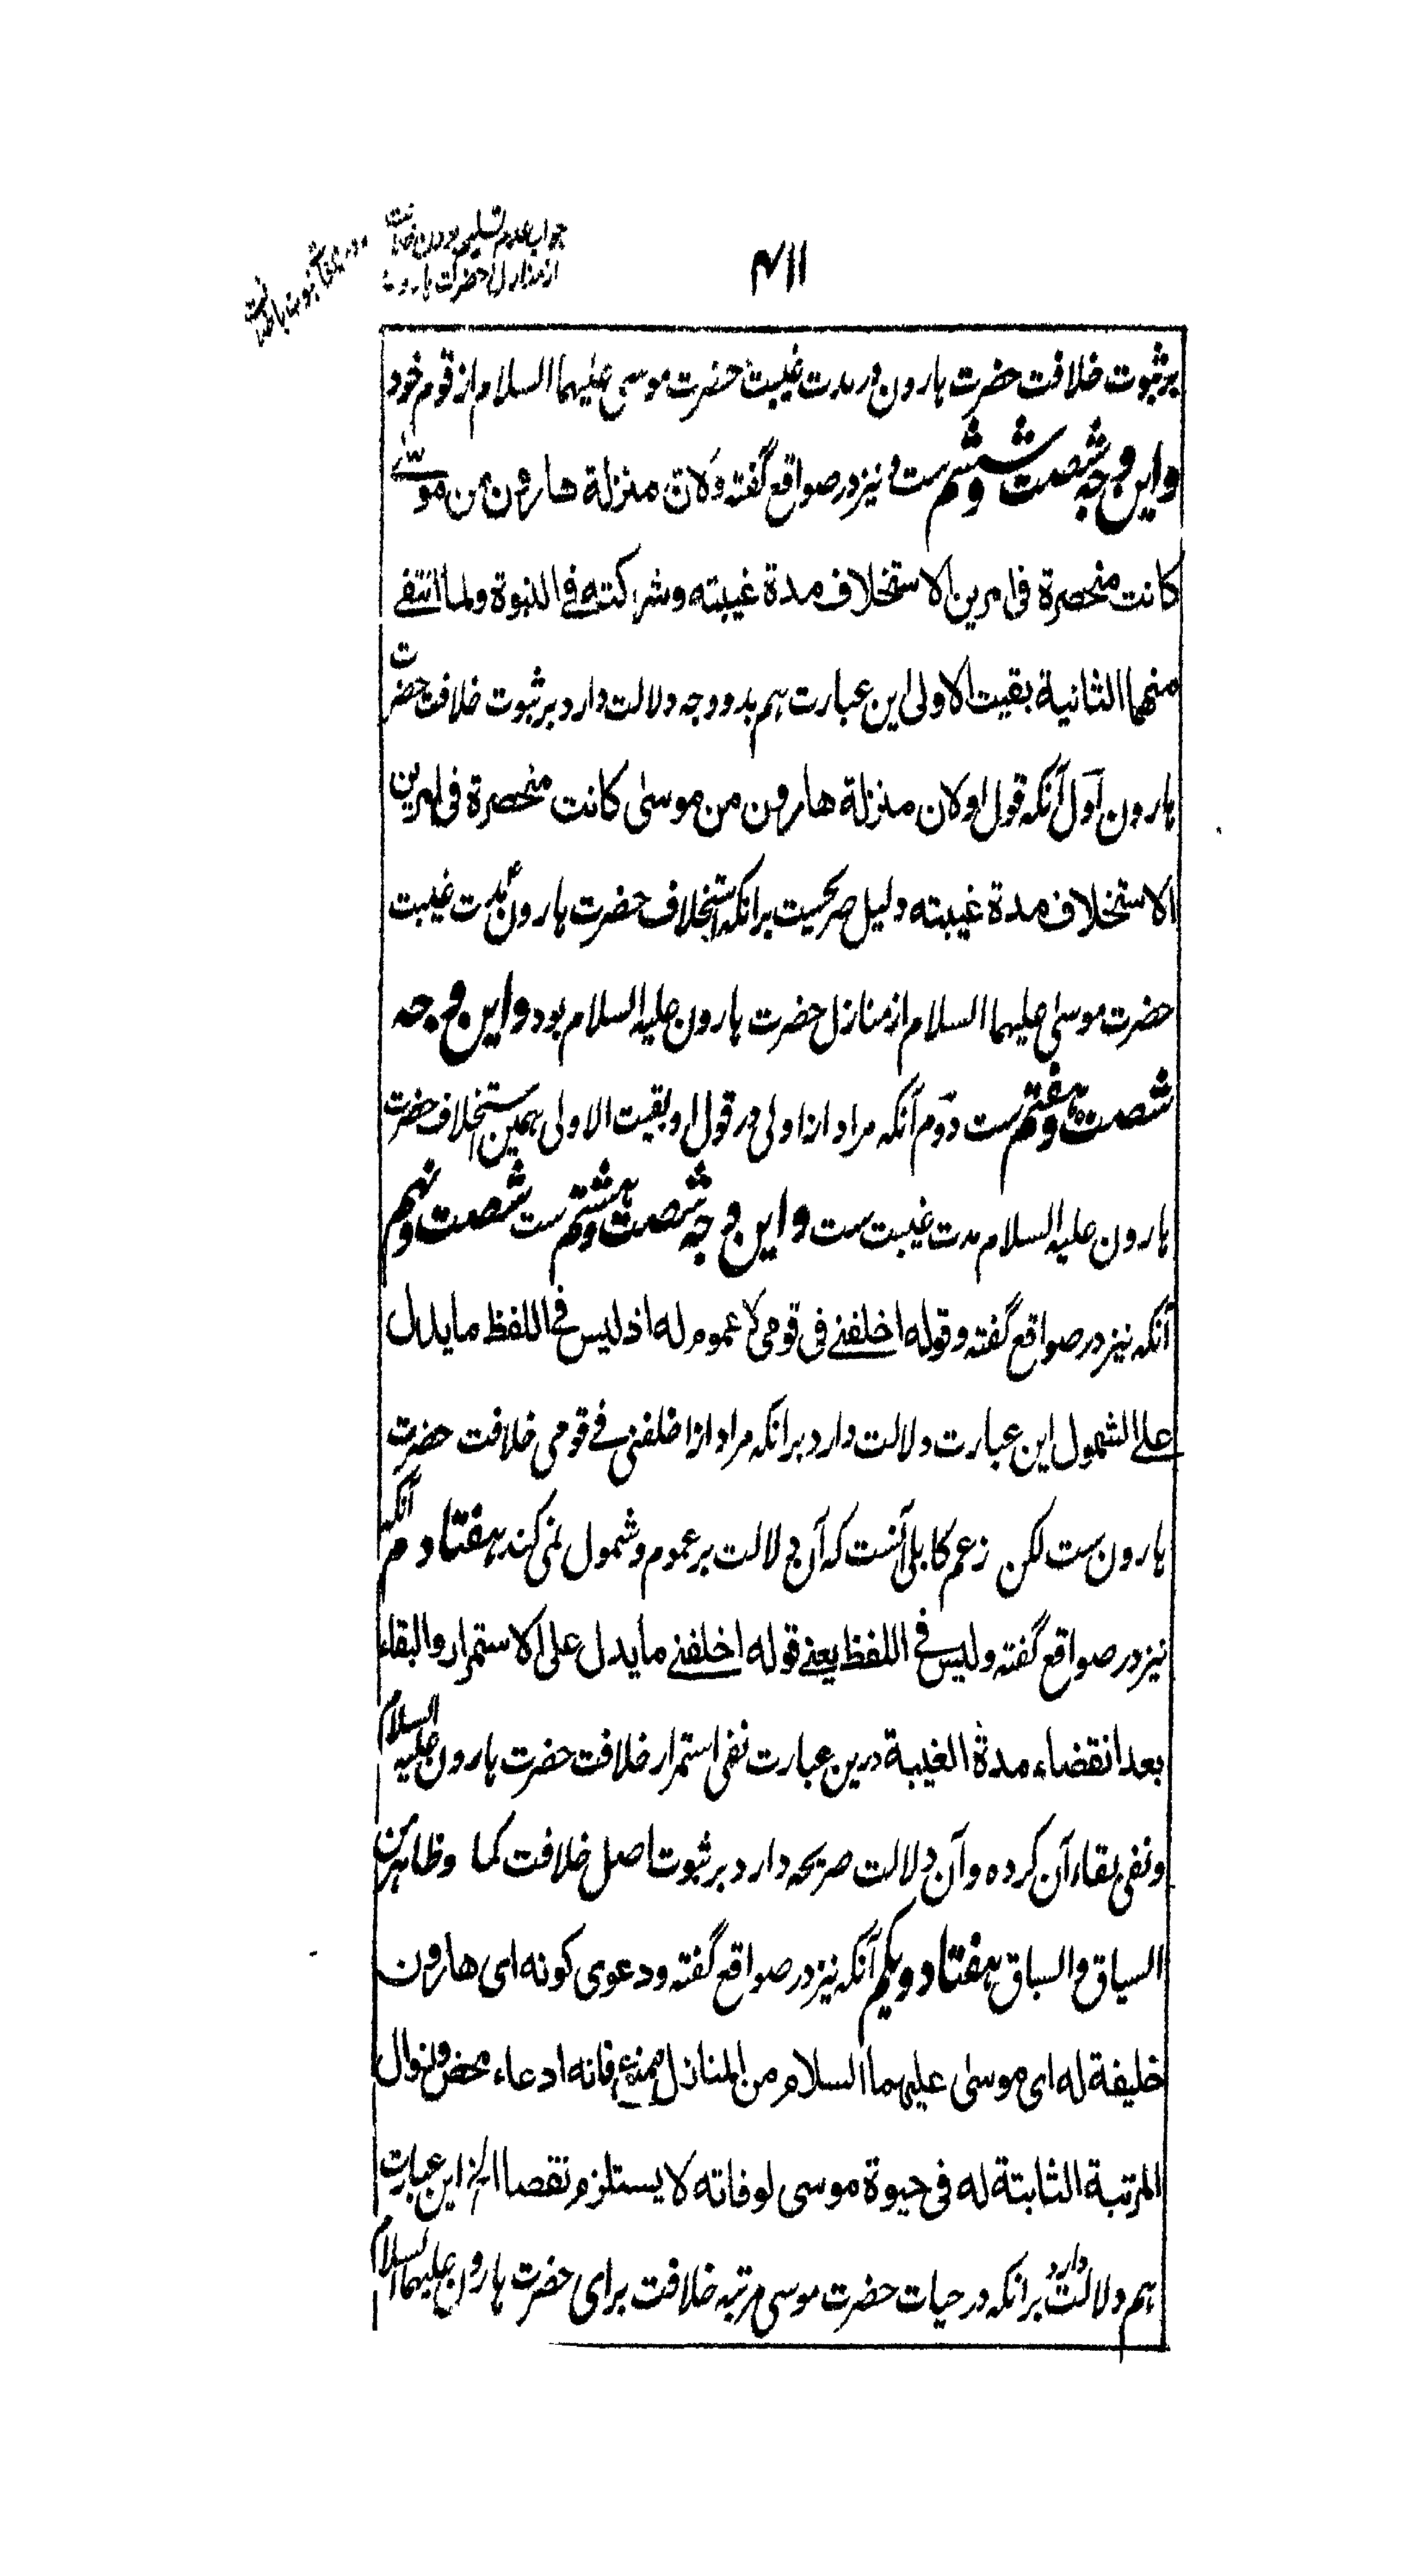 ۴۱۱
جواب عدم تسلیم بودن خلافت
از منازل حضرت هارون
بر ثبوت خلافت حضرت هارون در مدت غیبت حضرت موسی علیهما السلام از قوم خود
واین وجه شصت وششم ست ونیز در صواقع گفته ولان منزلة هارون من موسی
کانت منحصرة فی امرین الاستخلاف مدة غیبته وشرکته فی النبوة ولما انتفی
منهما الثانیة بقیت الاولی این عبارت هم بدو وجه دلالت دارد بر ثبوت خلافت حضرت
هارون اول آنکه قول او لان منزلة هارون من موسی کانت منحصرة فی امرین
الاستخلاف مدة غیبته دلیل صریحست برانکه استخلاف حضرت هارون بمدت غیبت
حضرت موسی علیهما السلام از منازل حضرت هارون علیه السلام بود واین وجه
شصت وهفتم ست دوم آنکه مراد از اولی در قول او بقیت الاولی همین استخلاف حضرت
هارون علیه السلام مدت غیبت ست واین وجه شصت وهشتم ست شصت ونهم
آنکه نیز در صواقع گفته وقوله اخلفنی فی قومی لا عموم له اذ لیس فی اللفظ ما یدل
علی الشمول این عبارت دلالت دارد برانکه مراد از اخلفنی فی قومی خلافت حضرت
هارون ست لکن زعم کابلی آنست که آن دلالت بر عموم وشمول نمی کند هفتادم آنکه
نیز در صواقع گفته ولیس فی اللفظ یعنی قوله اخلفنی ما یدل علی الاستمرار والبقاء
بعد انقضاء مدة الغیبة درین عبارت نفی استمرار خلافت حضرت هارون علیه السلام
ونفی بقاء آن کرده وآن دلالت صریحه دارد بر ثبوت اصل خلافت کما وظاهر من
السیاق والسباق هفتاد ویکم آنکه نیز در صواقع گفته ودعوی کونه ای هارون
خلیفة له ای موسی علیهما السلام من المنازل ممنوع فانه ادعاء محض وزوال
المرتبة الثابتة له فی حیوة موسی لوفاته لا یستلزم نقصا الخ این عبارت
هم دلالت دارد برانکه در حیات حضرت موسی مرتبه خلافت برای حضرت هارون علیهما السلام